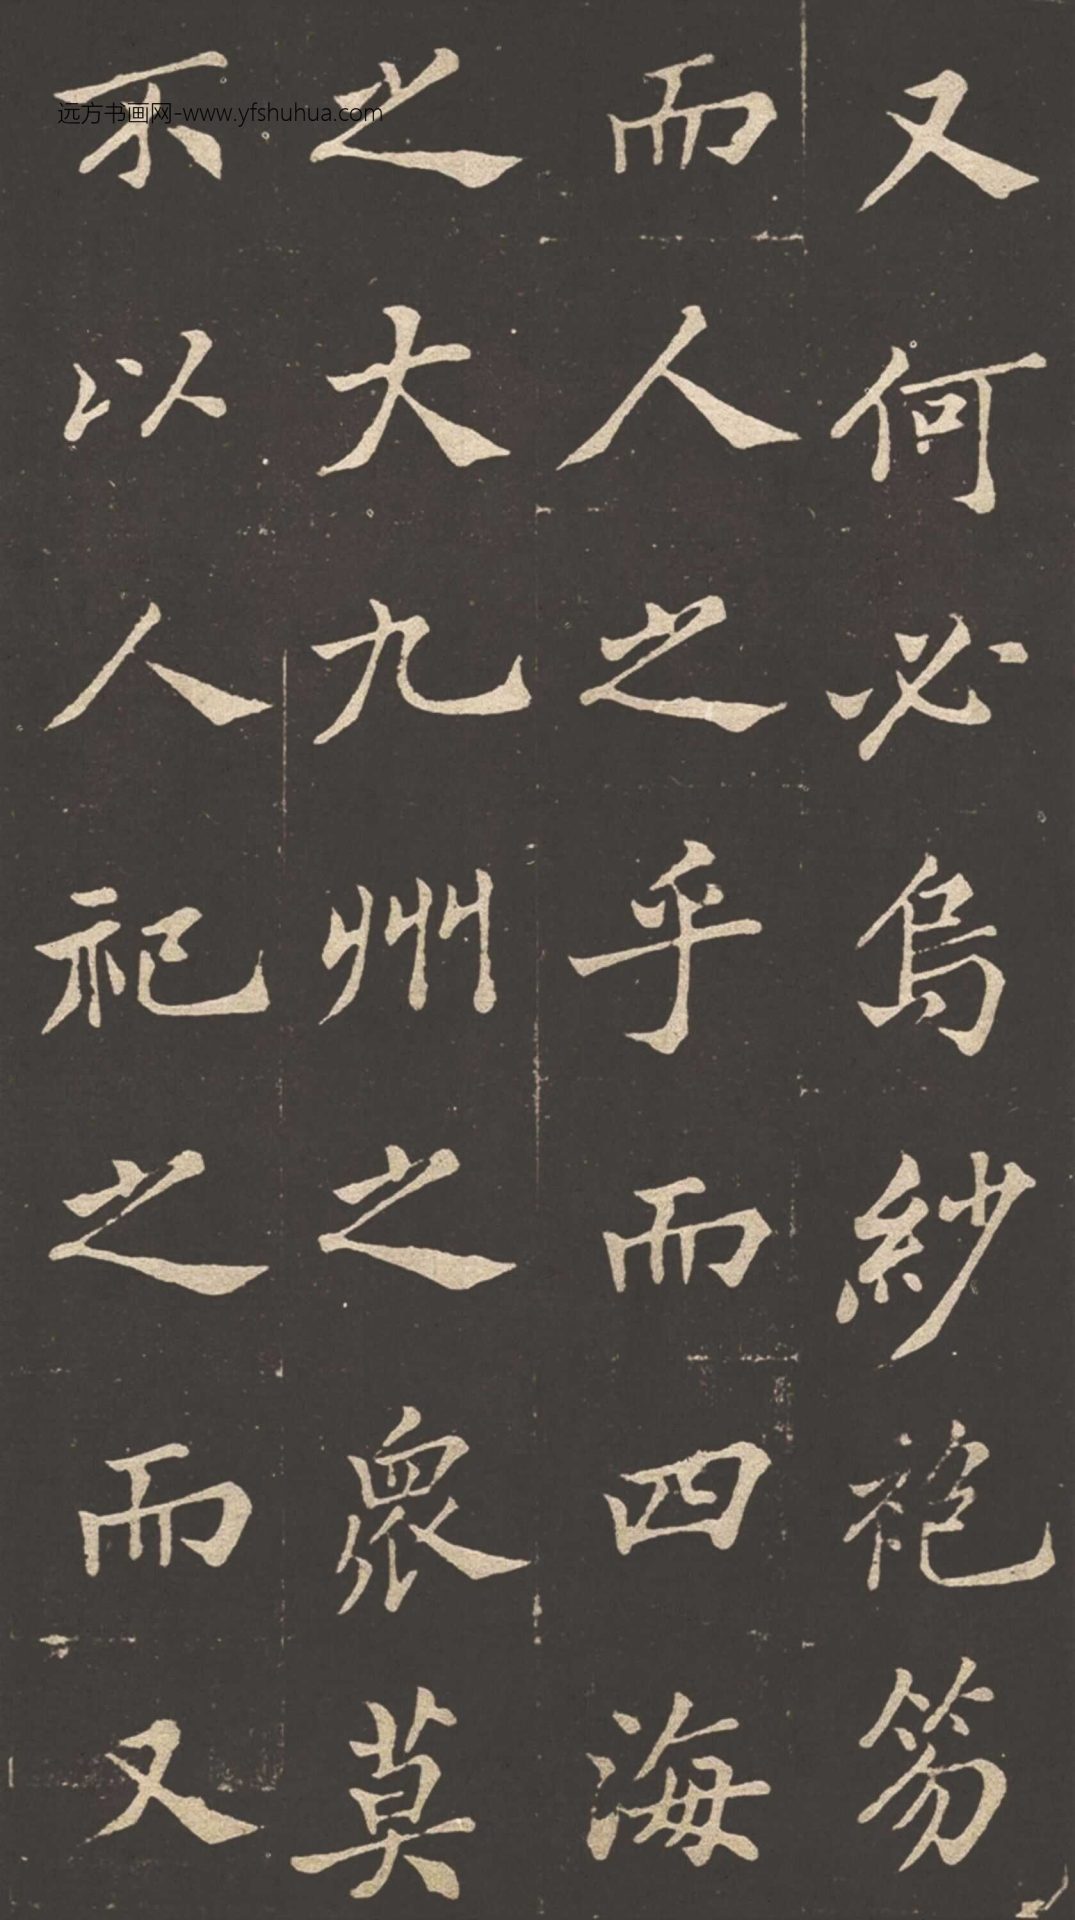 又何必烏紗袍笏
而人之乎而四海
之大九州之眾莫
不以人祀之而又
远方书画网-www.yfshuhua.com